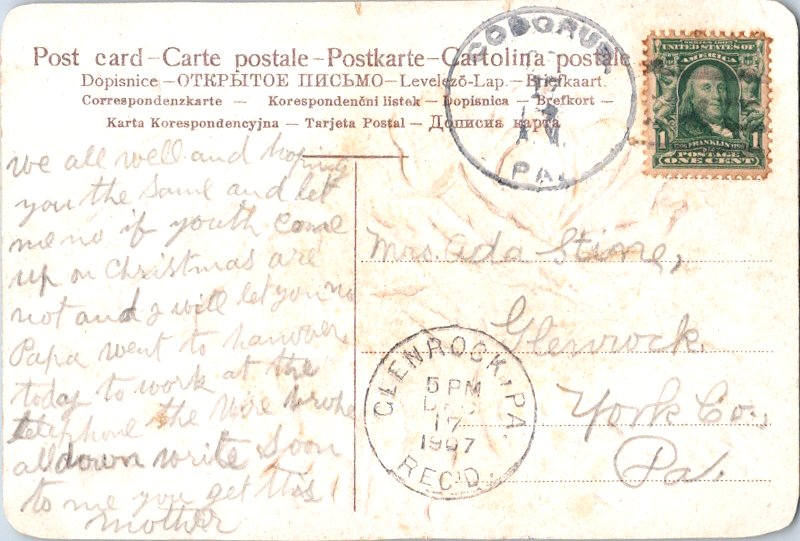 Post card – Carte postale – Postkarte – Cartolina postale
Dopisnice – ОТКРЫТОЕ ПИСЬМО – Levelező-Lap. – Briefkaart.
Correspondenzkarte — Korespondenční listek — Dopisnica — Brefkort —
Karta Korespondencyjna — Tarjeta Postal — Дописна карта
CODORUS
17
PA.
UNITED STATES OF
AMERICA
1 FRANKLIN 1
POSTAGE
ONE CENT
we all well and hoping
you the same and let
me no if youth come
up on Christmas are
not and I will let you no
Papa went to hanover
today to work at the
telephone the wire broke
all down write soon
to me you get this
mother
Mrs. Ada Stine,
Glenrock
York Co.,
Pa.
GLENROCK, PA.
5 PM
DEC
17
1907
REC'D.